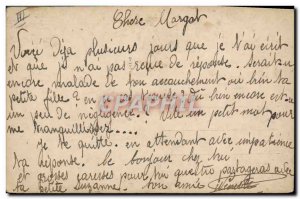 III
Chere Margot
Voici Déja plusieurs jours que je t'ai écrit
et que je n'ai pas reçue de réponse. Serais tu
encore malade de ton accouchement ou bien ta
petite fille? en
peu de negligence? Vite un petit mot pour
me tranquilliser....
je te quitte. en attendant avec impatience
ta réponse. le bonjour chez toi.
et grosses caresses pour toi que tu partageras avec
ta petite Suzanne. ton amie